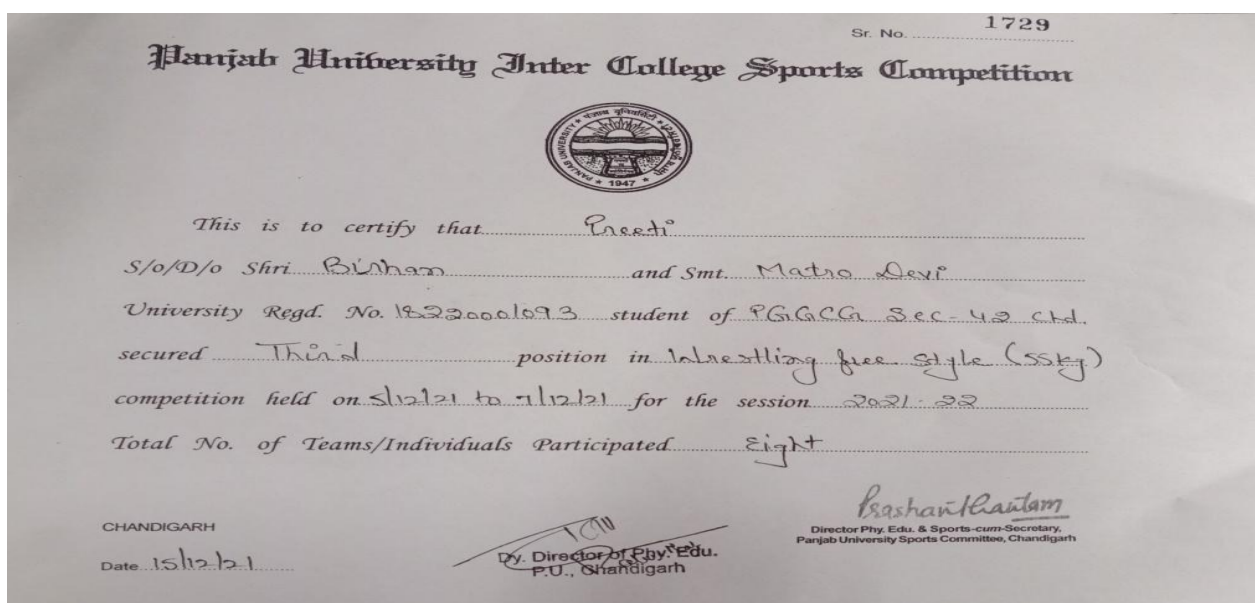 Sr. No. 1729
Panjab University Inter College Sports Competition
PANJAB UNIVERSITY
1947
This is to certify that Preeti
S/o/D/o Shri Birham and Smt. Matro Devi
University Regd. No. 18220001093 student of PGGCG Sec-42 Chd.
secured Third position in Wrestling free style (55kg)
competition held on 5/12/21 to 7/12/21 for the session 2021-22
Total No. of Teams/Individuals Participated Eight
CHANDIGARH
Date 15/12/21
Dy. Director of Phy. Edu.
P.U., Chandigarh
Director Phy. Edu. & Sports-cum-Secretary,
Panjab University Sports Committee, Chandigarh